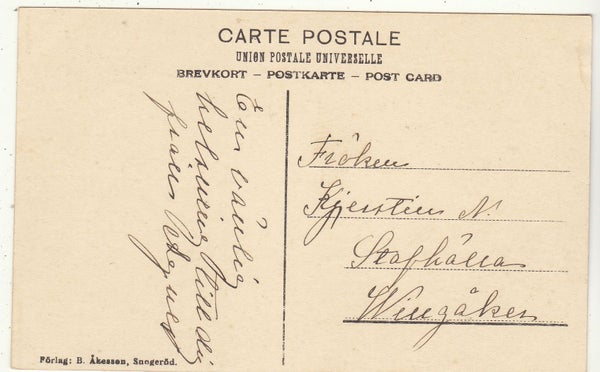 CARTE POSTALE
UNION POSTALE UNIVERSELLE
BREVKORT – POSTKARTE – POST CARD
En vänlig
helsning till dig
från
Fröken
Kjerstin N.
Stafhälla
Wingåker
Förlag: B. Åkesson, Snogeröd.